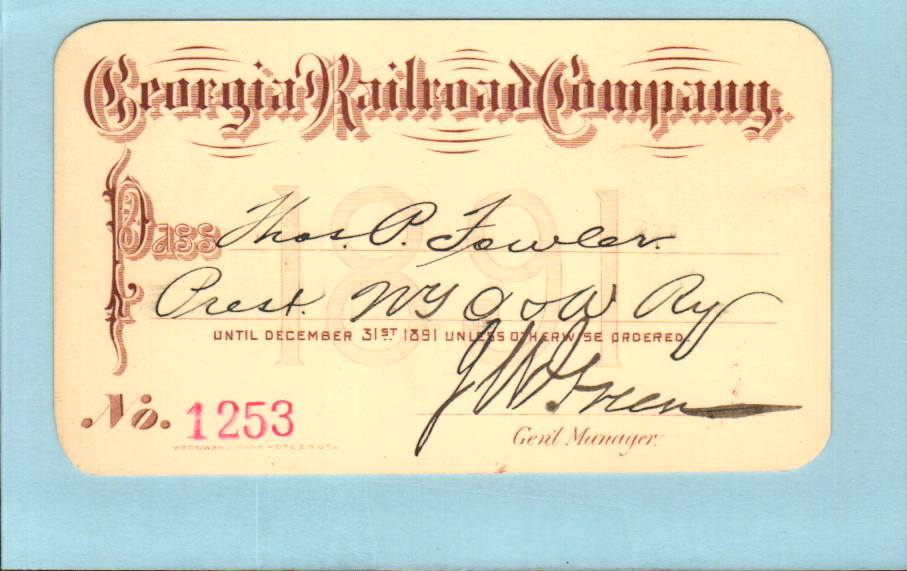 Georgia Railroad Company.
1891
Pass Thos. P. Fowler
Prest. NY O & W Ry
UNTIL DECEMBER 31ST 1891 UNLESS OTHERWISE ORDERED.
J W Green
No. 1253
Gen'l Manager.